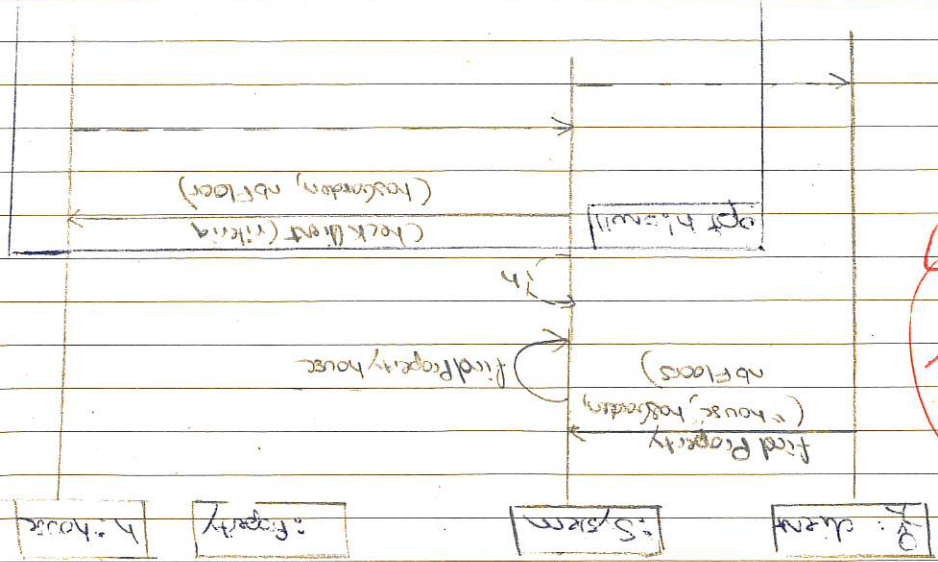 : client
: System
: Property
h: house
findProperty
("house", hasGarden,
nbFloors)
findPropertyhouse
h
opt h!=null
CheckClientCriteria
(hasGarden, nbFloor)